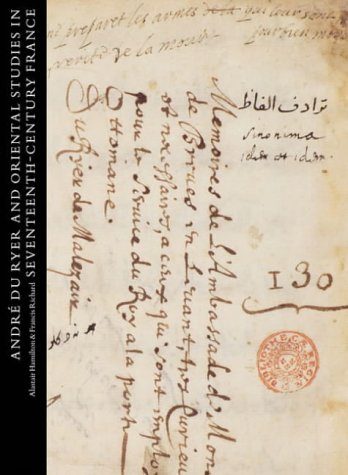 ANDRÉ DU RYER AND ORIENTAL STUDIES IN
SEVENTEENTH-CENTURY FRANCE
Alastair Hamilton & Francis Richard
preparer les armes
verité de la
ترادف الفاظ
Sinonima
idem et idem
130
Memoires de l'Ambassade de Mons
de Breves en Levant, tres curieux
et necessaires a ceux qui sont emploi
pour le service du Roy a la porte
Ottomane.
Du Ryer de Malezair